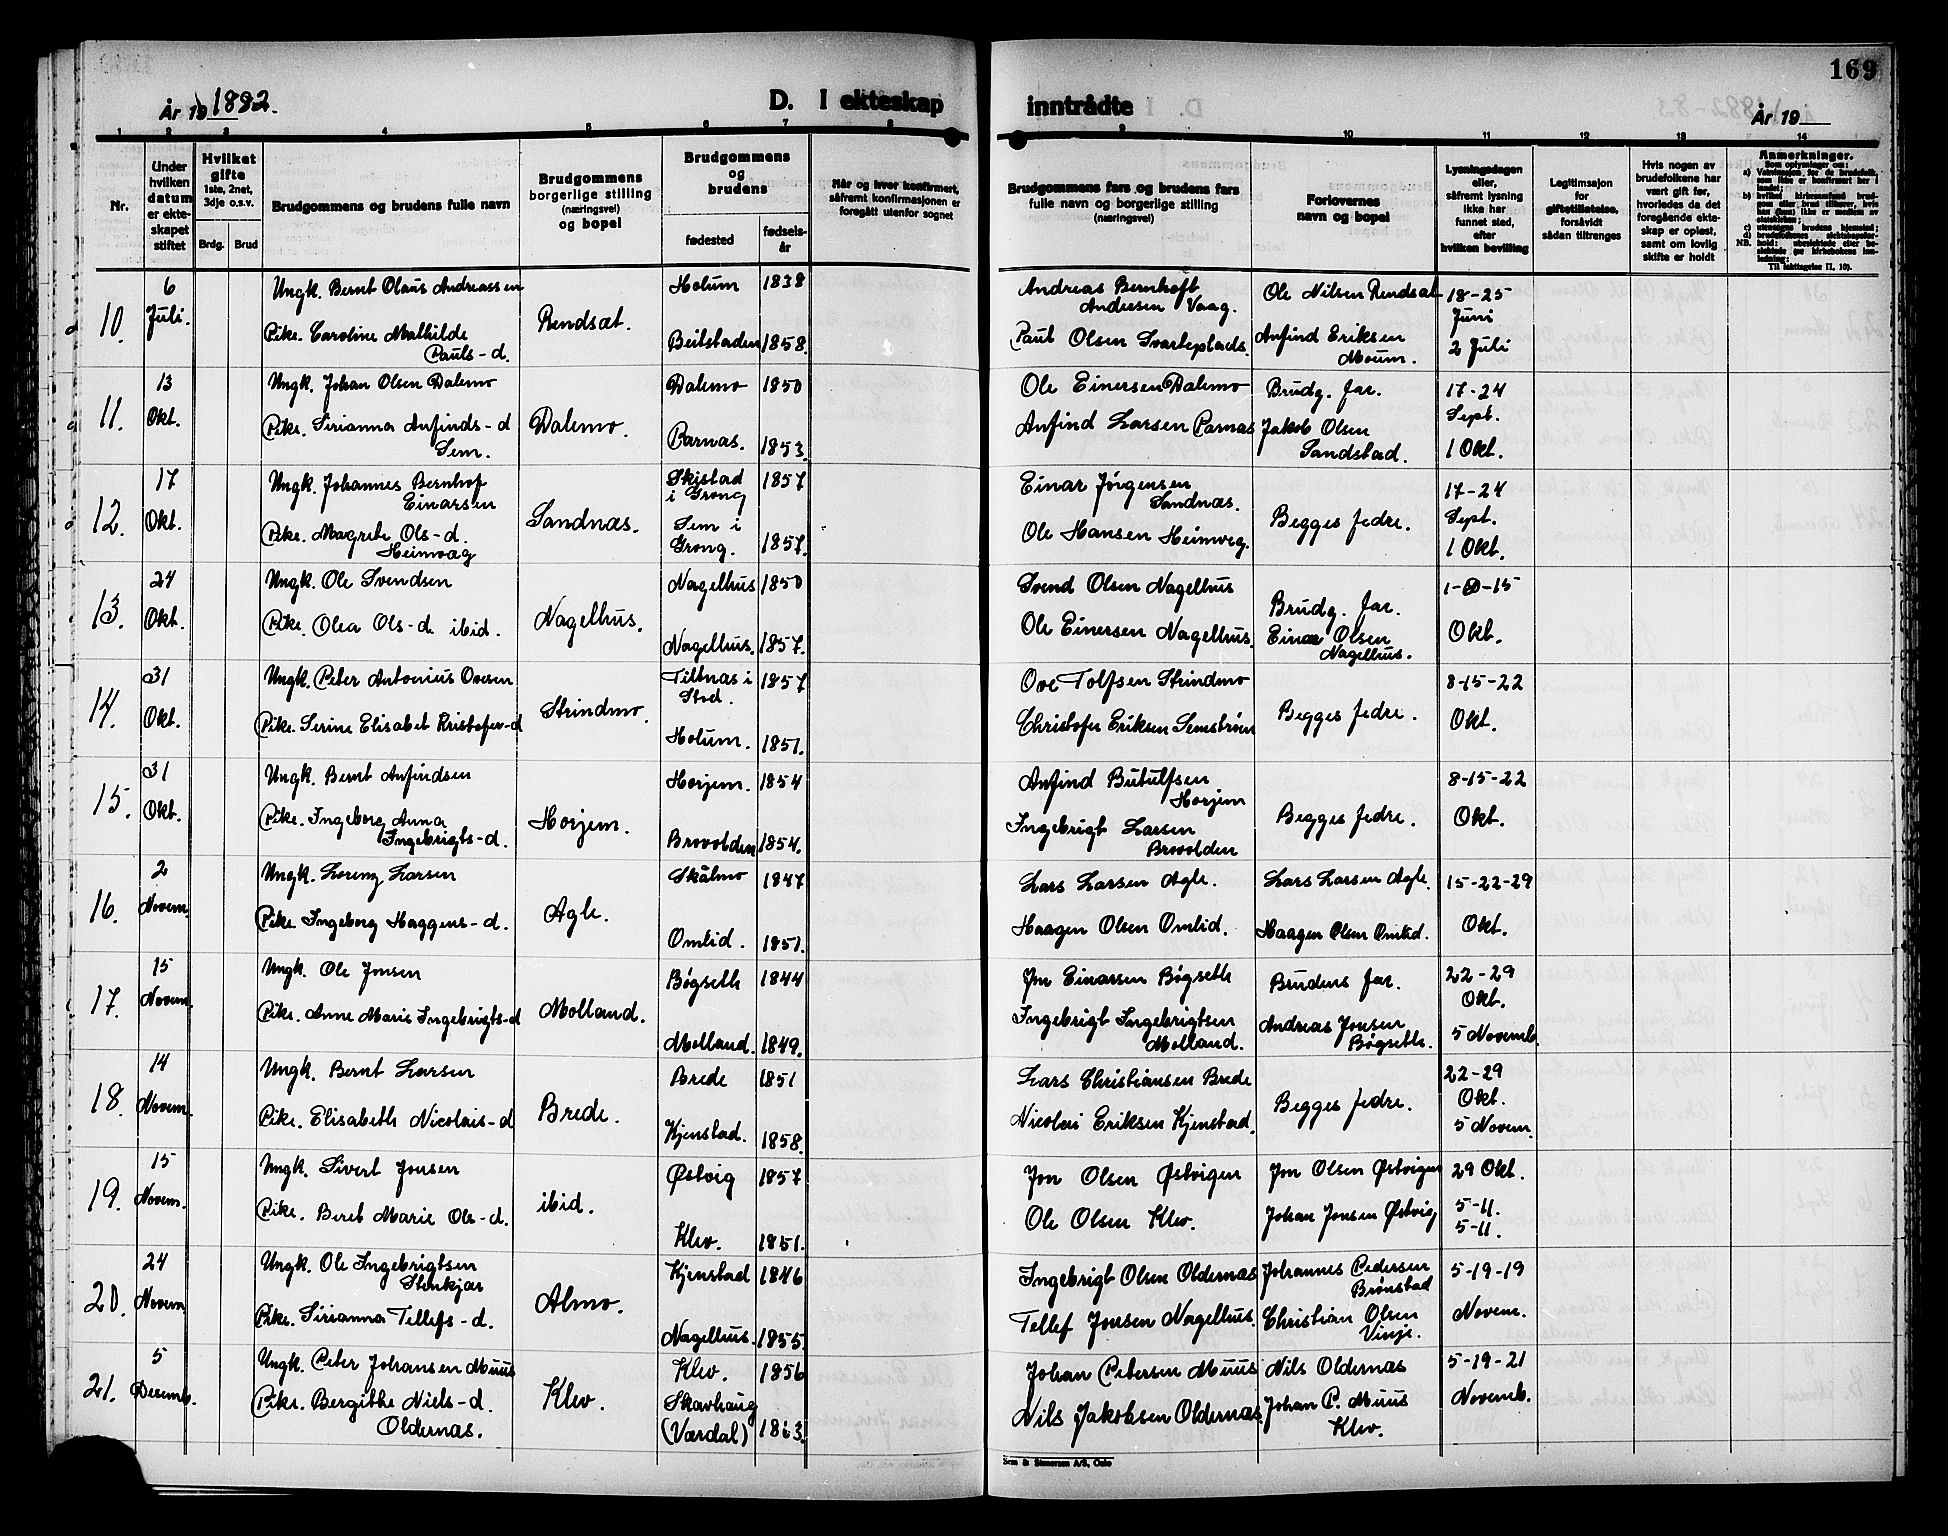 169
År 19 1882.
D. I ekteskap
inntrådte
År 19
1 2 3 4 5 6 7 8
9 10 11 12 13 14
Nr.
Under hvilken datum er ekteskapet stiftet
Hvilket gifte
1ste, 2net, 3dje o.s.v.
Brdg. Brud
Brudgommens og brudens fulle navn
Brudgommens borgerlige stilling (næringsvei) og bopel
Brudgommens og brudens
fødested
fødselsår
Når og hvor konfirmert, såfremt konfirmasjonen er foregått utenfor sognet
Brudgommens fars og brudens fars fulle navn og borgerlige stilling (næringsvei)
Forlovernes navn og bopel
Lysningsdagen eller, såfremt lysning ikke har funnet sted, efter hvilken bevilling
Legitimasjon for giftetillatelse, forsåvidt sådan tiltrenges
Hvis nogen av brudefolkene har vært gift før, hvorledes da det foregående ekteskap er opløst, samt om lovlig skifte er holdt
Anmerkninger.
10. 6 Juli.
Ungk. Bernt Olaus Andreassen
Pike. Caroline Mathilde
Pauls-d.
Rendsæt.
Holum 1838
Beitstaden 1858.
Andreas Bernhoft
Andersen Vaag.
Paul Olsen Svarteplads.
Ole Nilsen Rendsæt
Anfind Eriksen
Moum.
18-25
Juni
2 Juli
11. 13 Okt.
Ungk. Johan Olsen Dalemo
Pike. Sirianna Anfinds-d
Sem.
Dalemo.
Dalemo 1850
Parnas. 1853.
Ole Einersen Dalemo
Anfind Larsen Parnas
Brudg. far.
Jakob Olsen
Sandstad.
17-24
Sept.
1 Okt.
12. 17 Okt.
Ungk. Johannes Bernhof
Einarsen
Pike. Magrete Ols-d.
Heimvag
Sandnæs.
Skistad
i Grong 1857
Sem i
Grong. 1857.
Einar Jørgensen
Sandnæs.
Ole Hansen Heimveg.
Begges fedre.
17-24
Sept.
1 Okt.
13. 24 Okt.
Ungk. Ole Svendsen
Pike. Olea Ols-d. ibid.
Nagelhus.
Nagelhus 1850
Nagelhus. 1857.
Svend Olsen Nagelhus
Ole Einersen Nagelhus.
Brudg. far.
Einar Olsen
Nagelhus.
1-8-15
Okt.
14. 31 Okt.
Ungk. Peter Antonius Ovesen
Pike. Serine Elisabet Kristofer-d
Strindmo.
Tiltnas i
Stod. 1857
Holum. 1851.
Ove Tolfsen Strindmo
Christofer Eriksen Semstrøen
Begges fedre.
8-15-22
Okt.
15. 31 Okt.
Ungk. Bernt Anfindsen
Pike. Ingeborg Anna
Ingebrigts-d.
Horjem.
Horjem. 1854
Brovolden 1854.
Anfind Butulfsen
Horjem
Ingebrigt Larsen
Brovolden
Begges fedre.
8-15-22
Okt.
16. 2 Novem.
Ungk. Lorenz Larsen
Pike. Ingeborg Haggens-d.
Agle.
Skålmo 1847
Omlid. 1851.
Lars Larsen Agle.
Haagen Olsen Omlid.
Lars Larsen Agle.
Haagen Olsen Omlid.
15-22-29
Okt.
17. 15 Novem.
Ungk. Ole Jonsen
Pike. Anne Marie Ingebrigts-d
Molland.
Bøgseth 1844
Molland. 1849.
Jon Einarsen Bøgseth
Ingebrigt Ingebrigtsen
Molland.
Brudens far.
Andreas Jonsen
Bøgseth.
22-29
Okt.
5 Novemb.
18. 14 Novem.
Ungk. Bernt Larsen
Pike. Elisabeth Nicolais-d
Brede.
Brede 1851
Kjenstad. 1858.
Lars Christiansen Brede
Nicolai Eriksen Kjenstad.
Begges fedre.
22-29
Okt.
5 Novem.
19. 15 Novem.
Ungk. Sivert Jonsen
Pike. Beret Marie Ols-d.
ibid.
Østvig 1857
Klev. 1851.
Jon Olsen Østvigen
Ole Olsen Klev.
Jon Olsen Østvigen
Johan Jonsen Østvig
29 Okt.
5-11.
5-11.
20. 24 Novem.
Ungk. Ole Ingebrigtsen
Stenkjær
Pike. Sirianna Tellefs-d.
Almo.
Kjenstad 1846
Nagelhus. 1855.
Ingebrigt Olsen Oldernæs
Tellef Jonsen Nagelhus.
Johannes Pedersen
Brønstad
Christian Olsen
Vinje.
5-19-19
Novem.
21. 5 Desemb.
Ungk. Peter Johansen Muus
Pike. Bergithe Niels-d.
Oldernæs.
Klev.
Klev. 1856
Skavhaug
(Værdal)
Johan Petersen Muus
Nils Jakobsen Oldernæs.
Nils Oldernæs
Johan P. Muus
Klev.
5-19-21
Novemb.
Sem & Stenersen A/S, Oslo